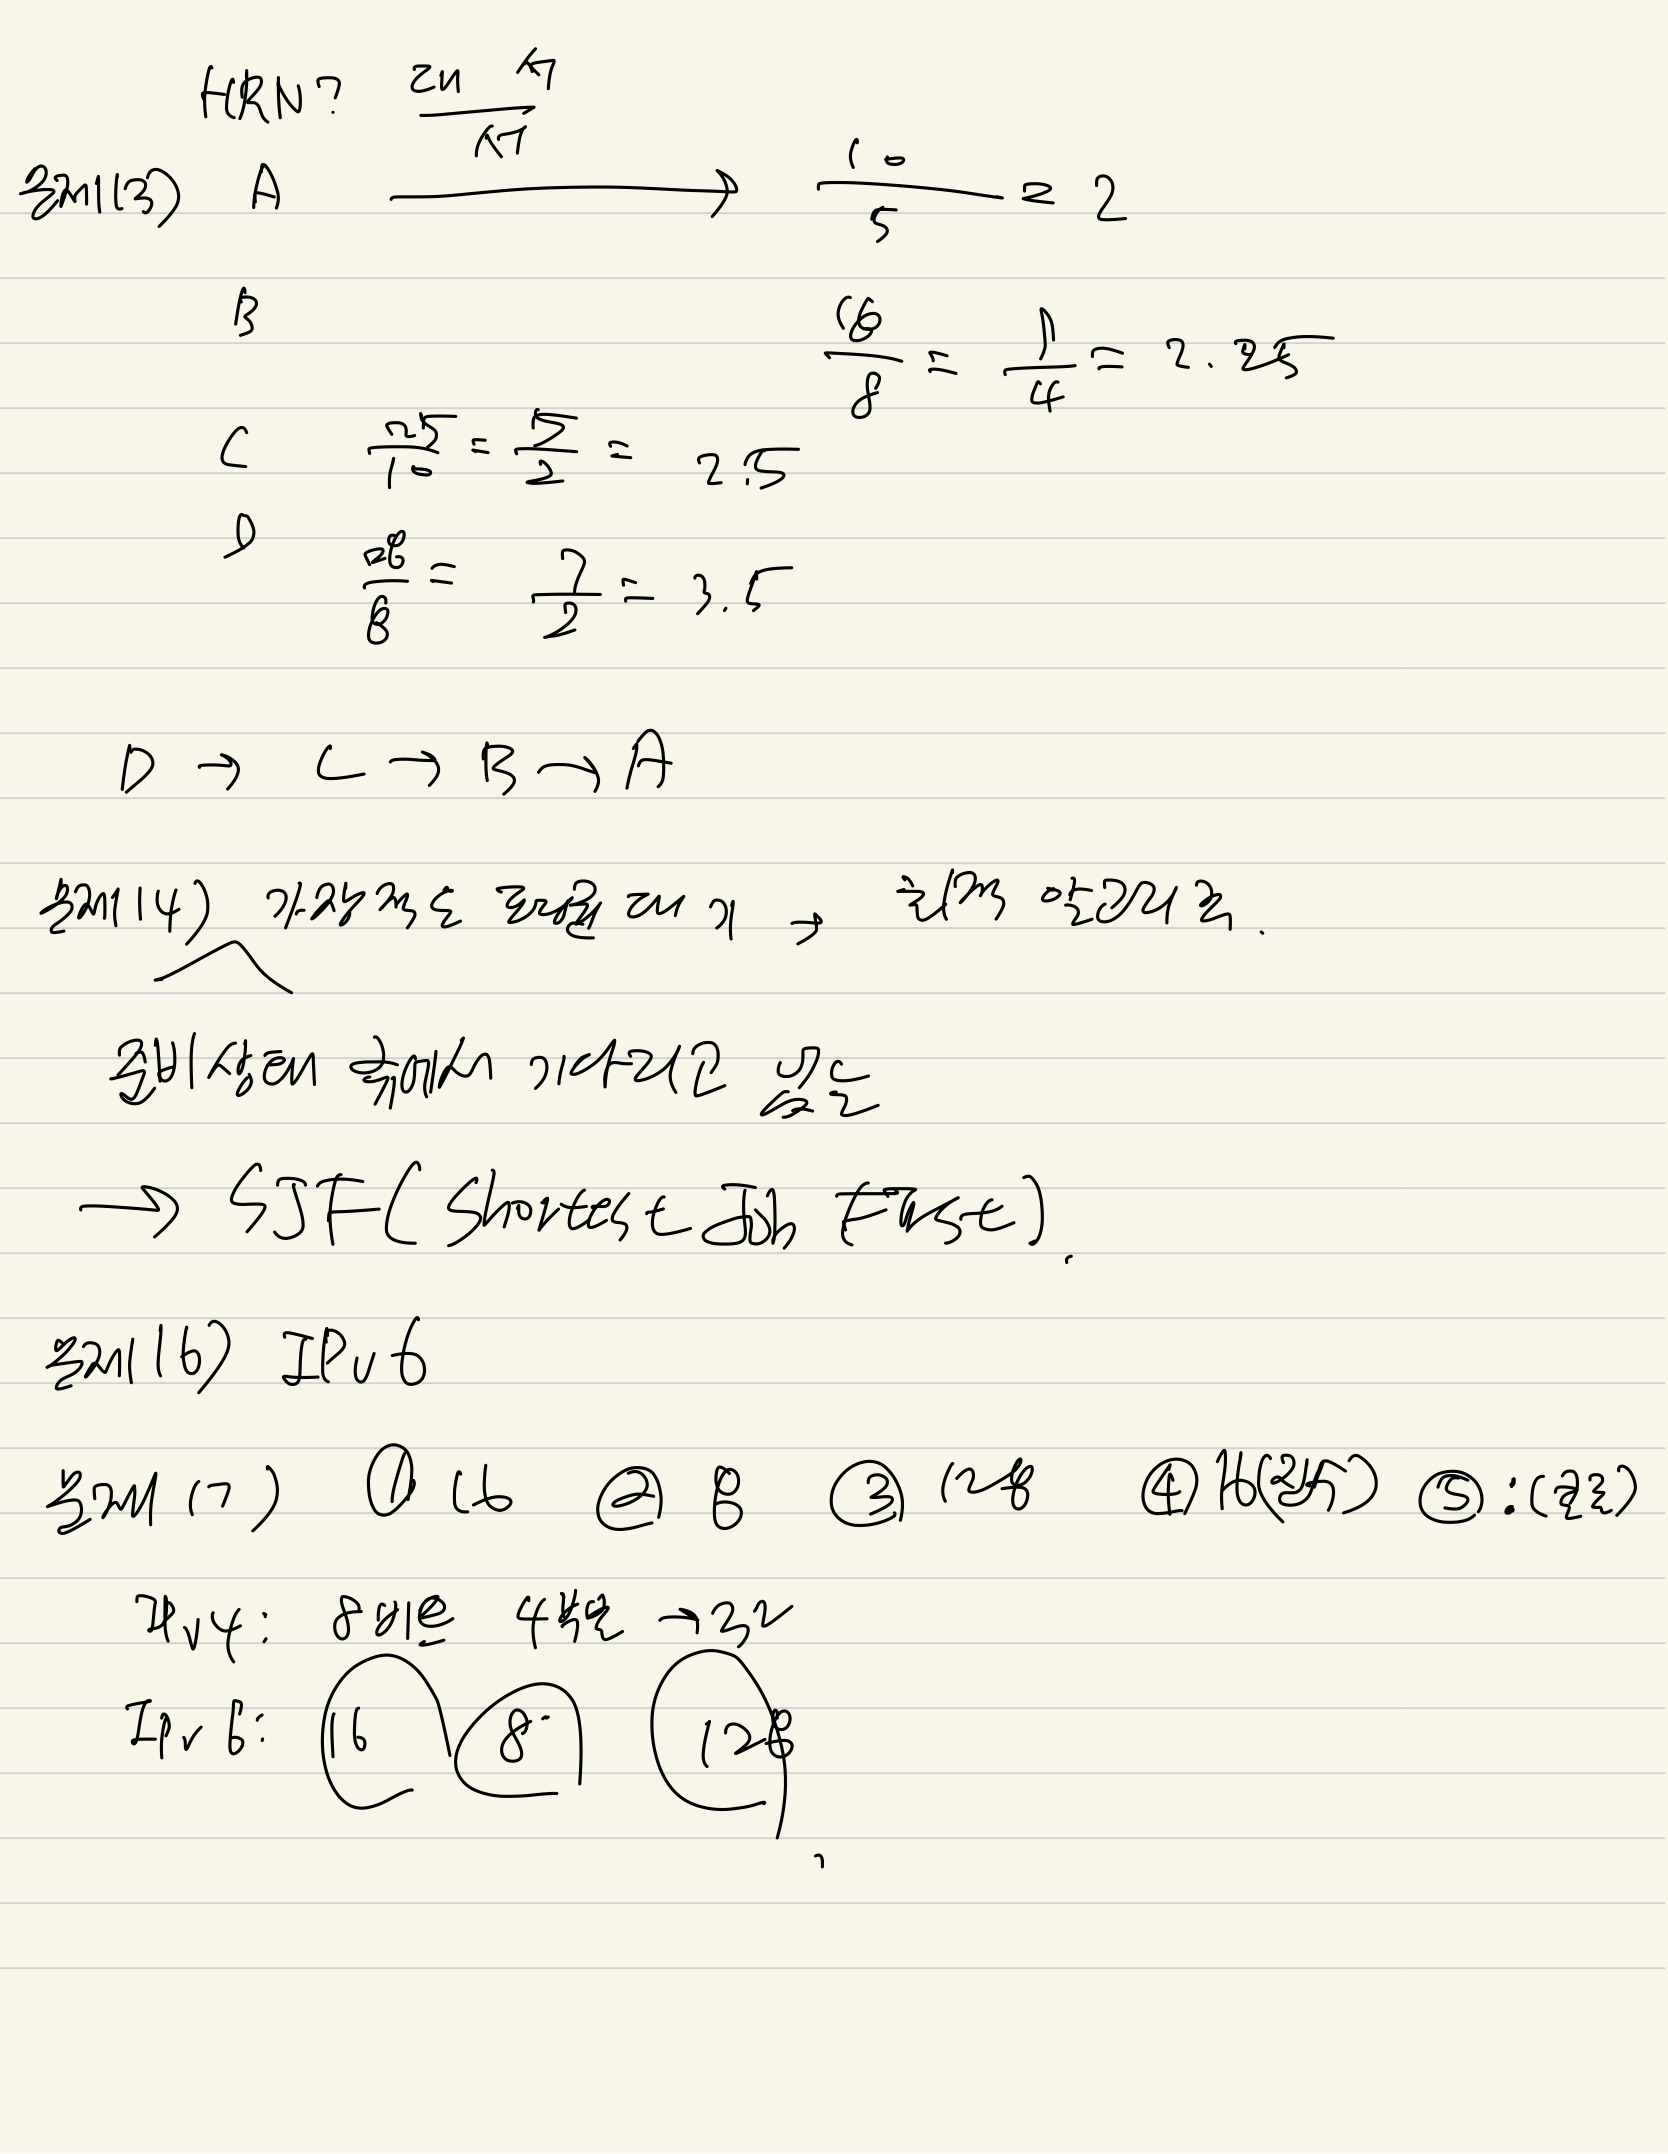 HRN? 대 서
서
문제13) A → 10/5 = 2
B 16/8 = 9/4 = 2.25
C 25/10 = 5/2 = 2.5
D 28/8 = 7/2 = 3.5
D → C → B → A
문제14) 가장 적은 평균 대기 → 최적 알고리즘.
준비상태 큐에서 기다리고 있는
→ SJF(Shortest Job First).
문제16) IPv6
문제17) ① 16 ② 8 ③ 128 ④ 16(진수) ⑤ :(콜론)
IPv4: 8비트 4부분 → 32
IPv6: 16 8 128